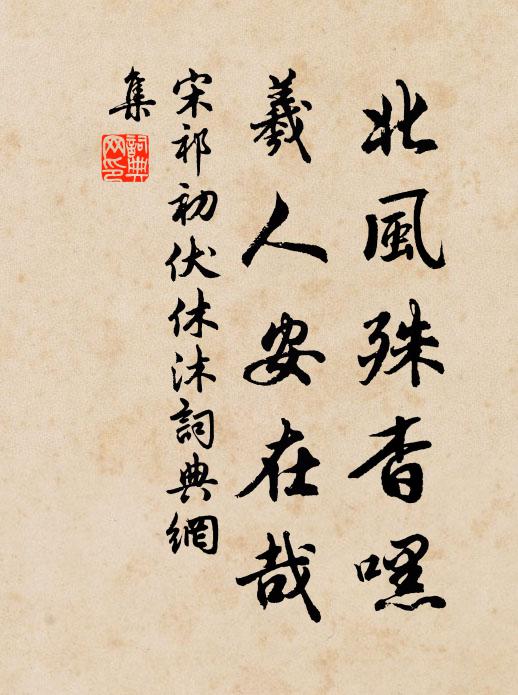 北風殊杳嘿
羲人安在哉
宋祁初伏休沐詞典網
集
詞典
网印